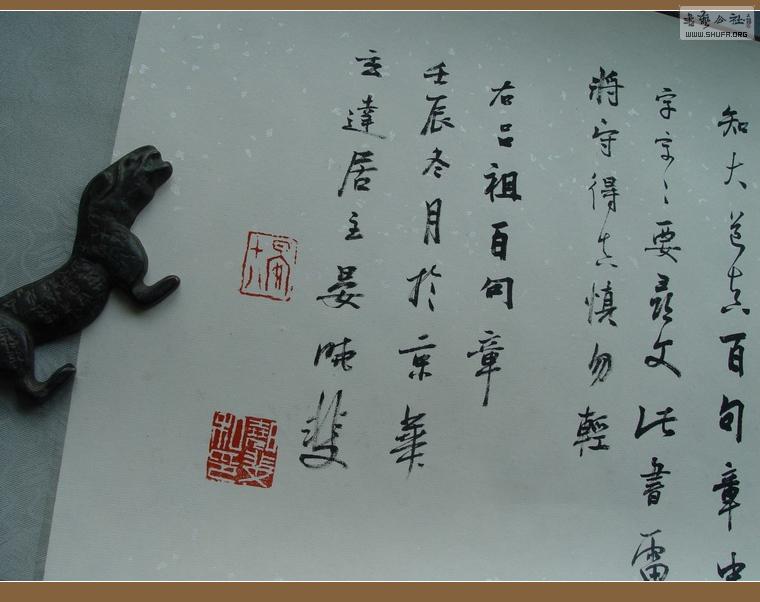 知大道真百句章中
字字〻要尋文此書
將守得真慎勿輕
右吕祖百句章
壬辰冬月於京華
玄達居主晏斐
书艺公社
WWW.SHUFA.ORG